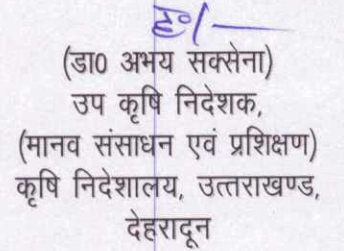 ह०/—
(डा0 अभय सक्सेना)
उप कृषि निदेशक,
(मानव संसाधन एवं प्रशिक्षण)
कृषि निदेशालय, उत्तराखण्ड,
देहरादून